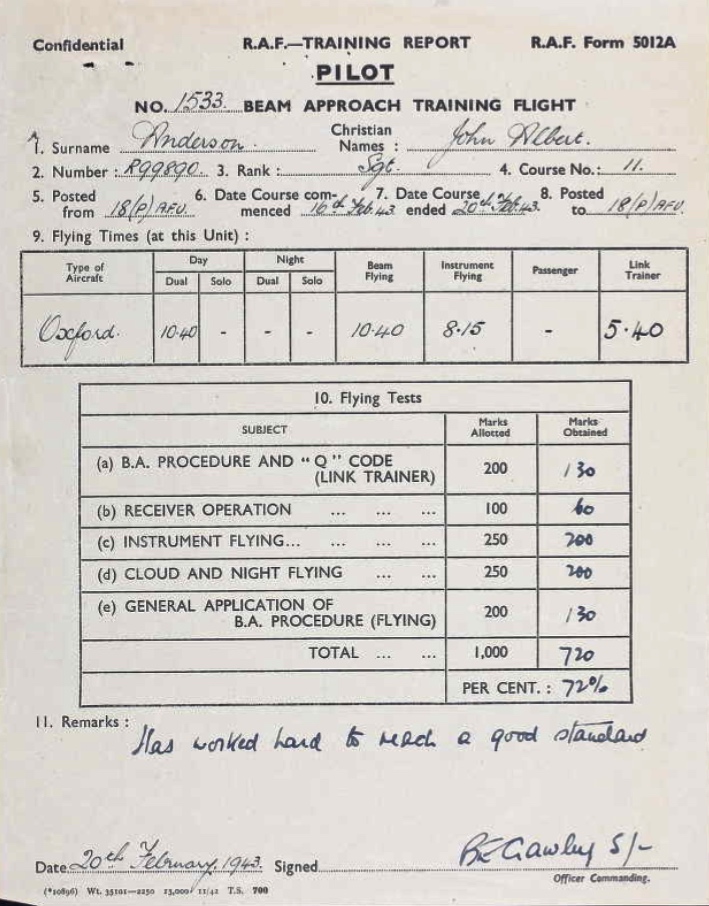 Confidential R.A.F.—TRAINING REPORT R.A.F. Form 5012A
PILOT
NO. 1533. BEAM APPROACH TRAINING FLIGHT
1. Surname Anderson. Christian Names : John Albert.
2. Number : R99890. 3. Rank : Sgt. 4. Course No. : 11.
5. Posted from 18(P)AFU. 6. Date Course commenced 16th Feb. 43 7. Date Course ended 20th Feb. 43. 8. Posted to 18(P)AFU.
9. Flying Times (at this Unit) :
Type of Aircraft Day Night Beam Flying Instrument Flying Passenger Link Trainer
Dual Solo Dual Solo
Oxford. 10.40 - - - 10.40 8.15 - 5.40
10. Flying Tests
SUBJECT Marks Allotted Marks Obtained
(a) B.A. PROCEDURE AND "Q" CODE
(LINK TRAINER) 200 130
(b) RECEIVER OPERATION ... ... ... 100 60
(c) INSTRUMENT FLYING... ... ... ... 250 200
(d) CLOUD AND NIGHT FLYING ... ... 250 200
(e) GENERAL APPLICATION OF
B.A. PROCEDURE (FLYING) 200 130
TOTAL ... ... 1,000 720
PER CENT. : 72%
11. Remarks :
Has worked hard to reach a good standard
Date 20th February, 1943. Signed S/-
Officer Commanding.
(*20896) Wt. 35101—2250 15,000 11/42 T.S. 700